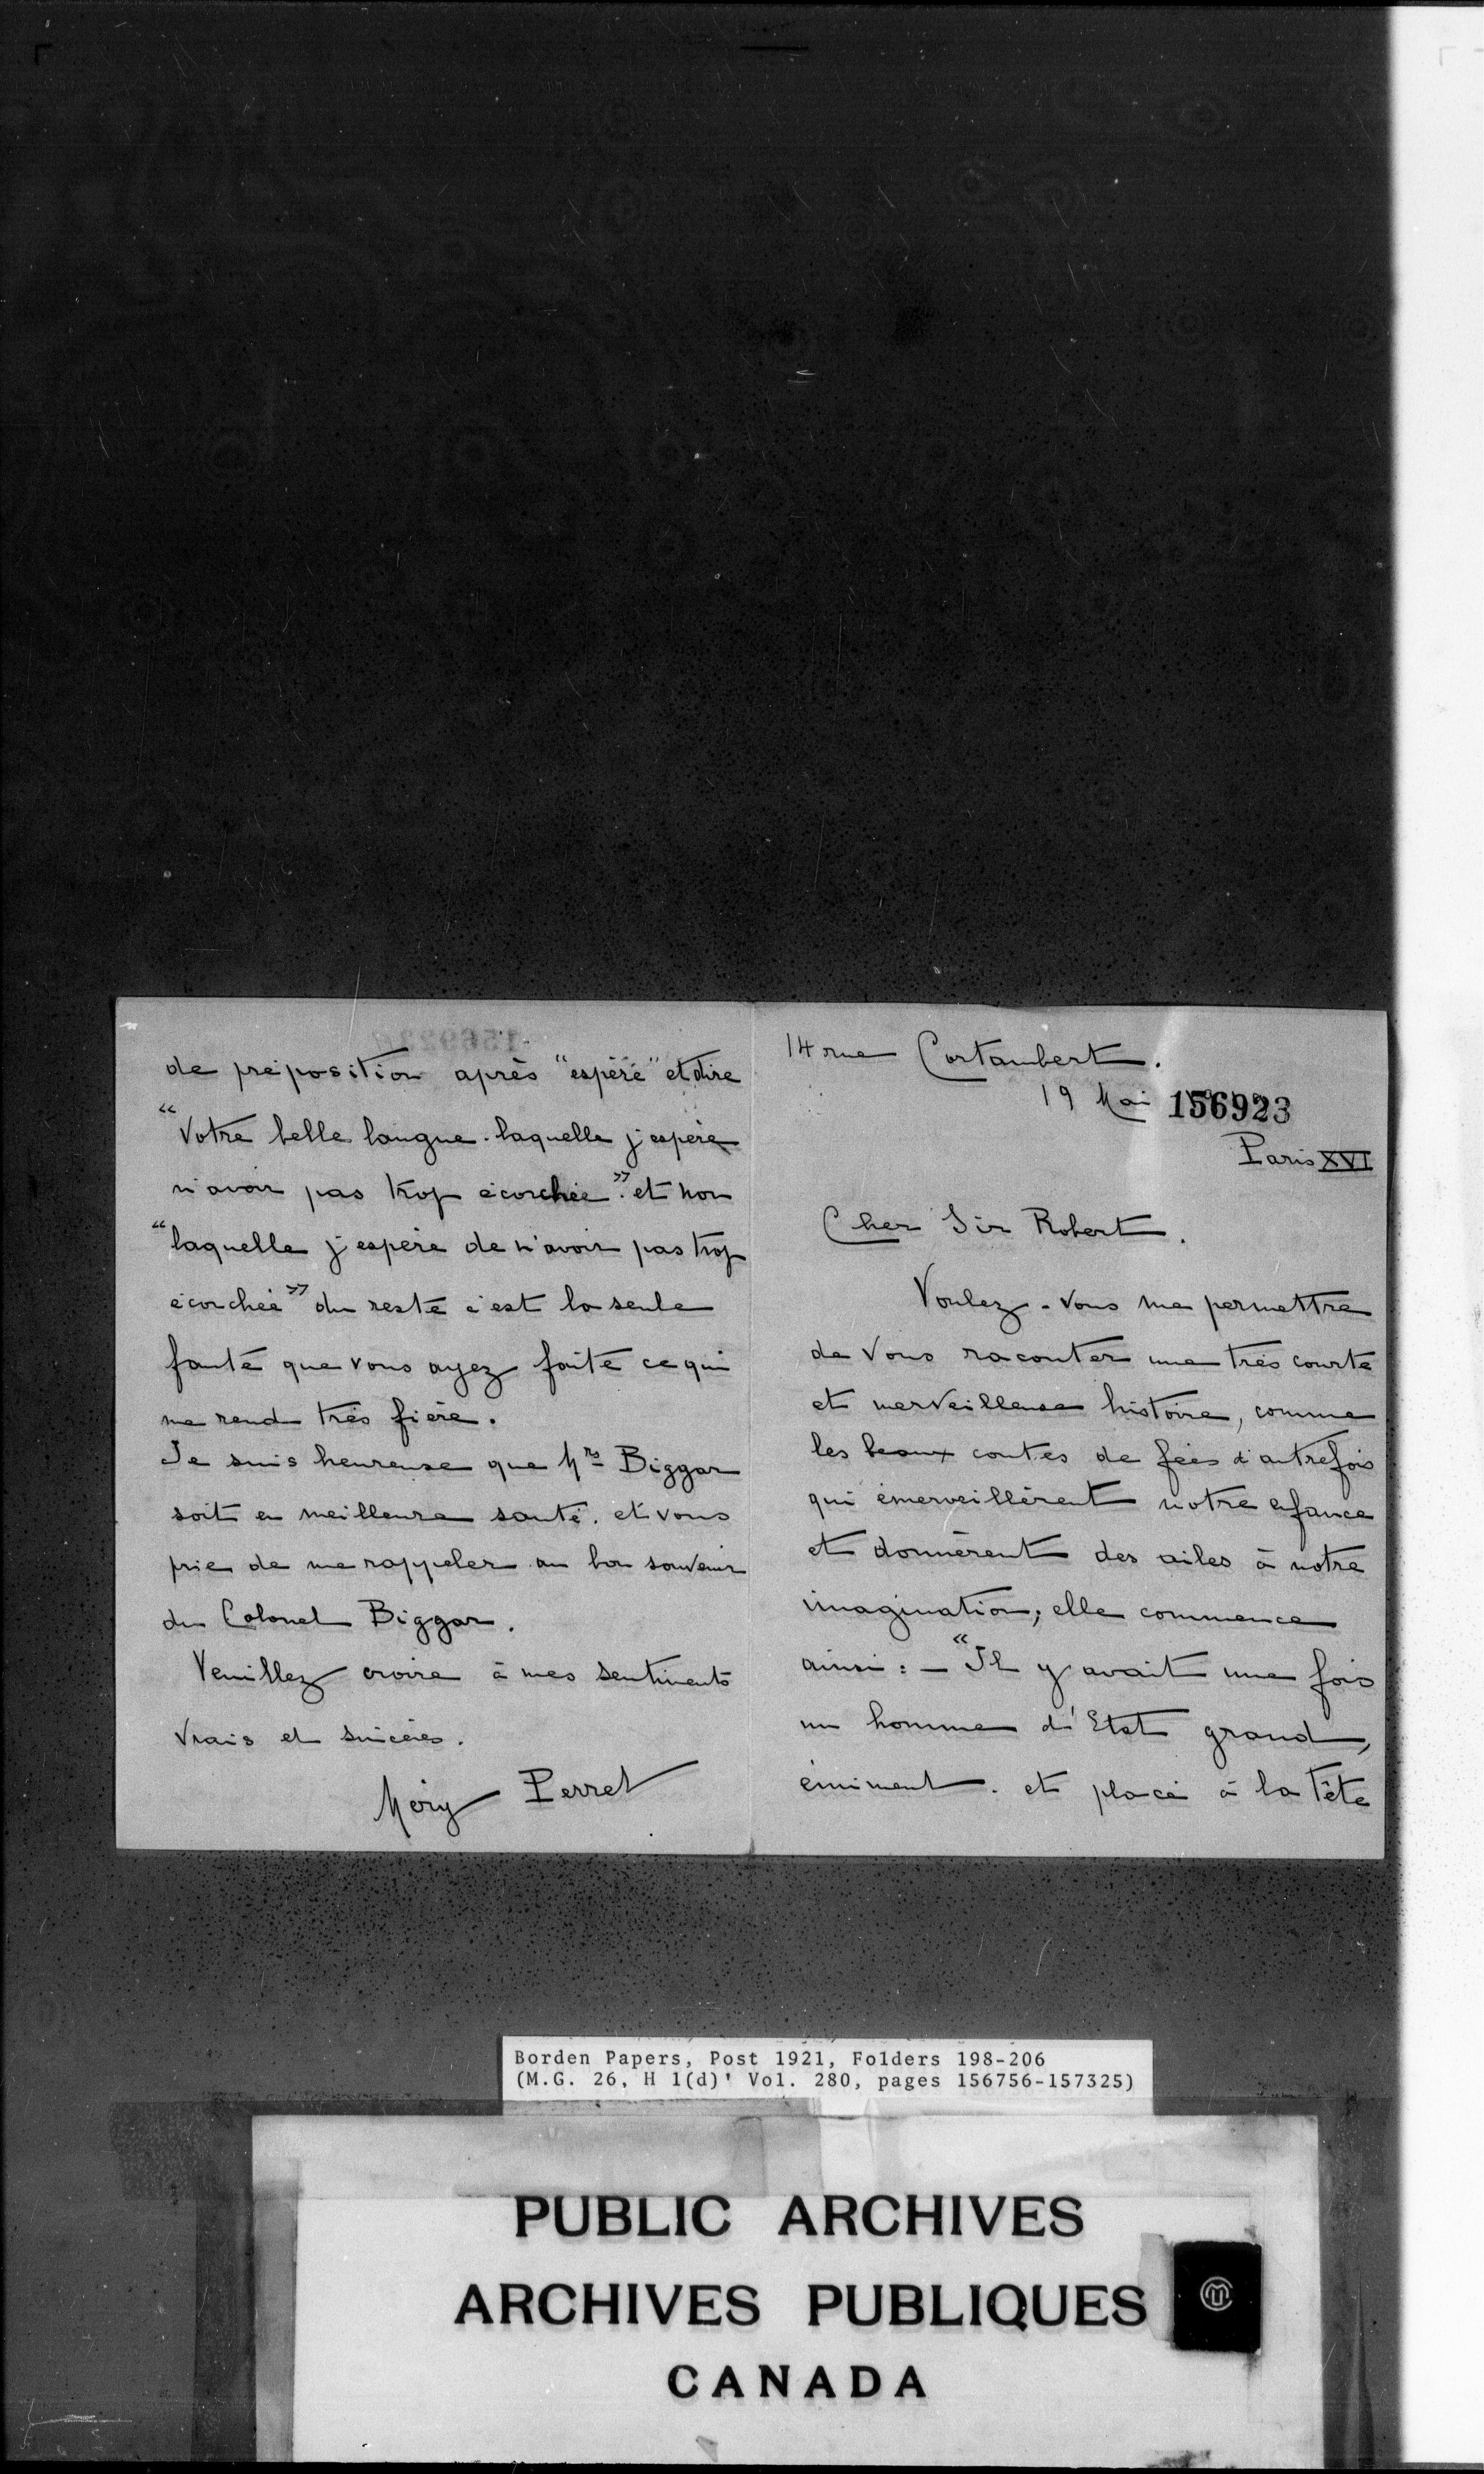 14 rue Cortambert.
19 Mai 156923
Paris XVI
Cher Sir Robert.
Voulez-vous me permettre
de vous raconter une très courte
et merveilleuse histoire, comme
les beaux contes de fées d'autrefois
qui émerveillèrent notre enfance
et donnèrent des ailes à notre
imagination; elle commence
ainsi: — "Il y avait une fois
un homme d'Etat grand,
éminent. et placé à la tête
de préposition après "espère" et dire
"Votre belle langue. laquelle j'espère
n'avoir pas trop écorchée". et non
"laquelle j'espère de n'avoir pas trop
écorchée" du reste c'est la seule
faute que vous ayez faite ce qui
me rend très fière.
Je suis heureuse que Mrs Biggar
soit en meilleure santé. et vous
prie de me rappeler au bon souvenir
du Colonel Biggar.
Veuillez croire à mes sentiments
vrais et sincères.
Méry Perret
Borden Papers, Post 1921, Folders 198-206
(M.G. 26, H 1(d)' Vol. 280, pages 156756-157325)
PUBLIC ARCHIVES
ARCHIVES PUBLIQUES
CANADA